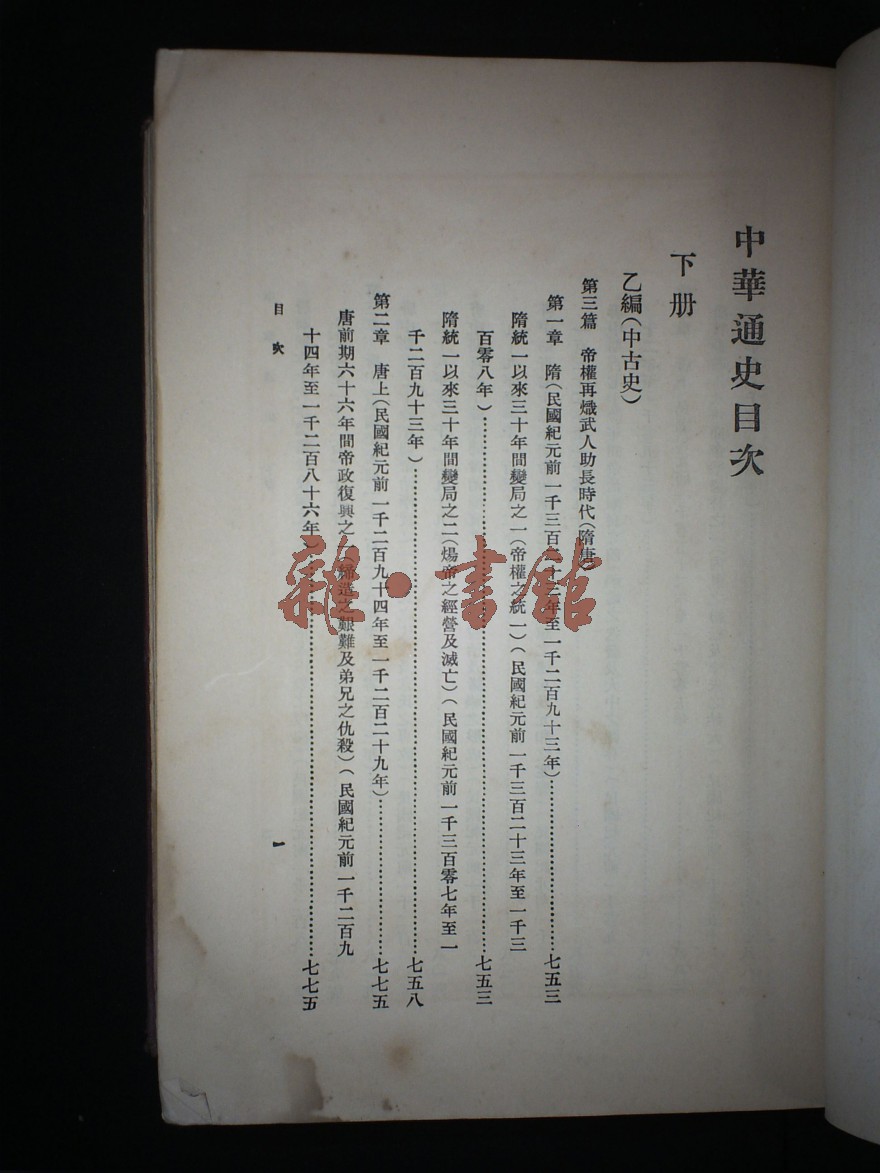 中華通史目次
下册
乙編（中古史）
第三篇　帝權再熾武人助長時代（隋唐）
第一章　隋（民國紀元前一千三百二十三年至一千二百九十三年）…………七五三
隋統一以來三十年間變局之一（帝權之統一）（民國紀元前一千三百二十三年至一千三
百零八年）…………七五三
隋統一以來三十年間變局之二（煬帝之經營及滅亡）（民國紀元前一千三百零七年至一
千二百九十三年）…………七五八
第二章　唐上（民國紀元前一千二百九十四年至一千二百二十九年）…………七七五
唐前期六十六年間帝政復興之一（締造之艱難及弟兄之仇殺）（民國紀元前一千二百九
十四年至一千二百八十六年）…………七七五
目次
一
雜·書館